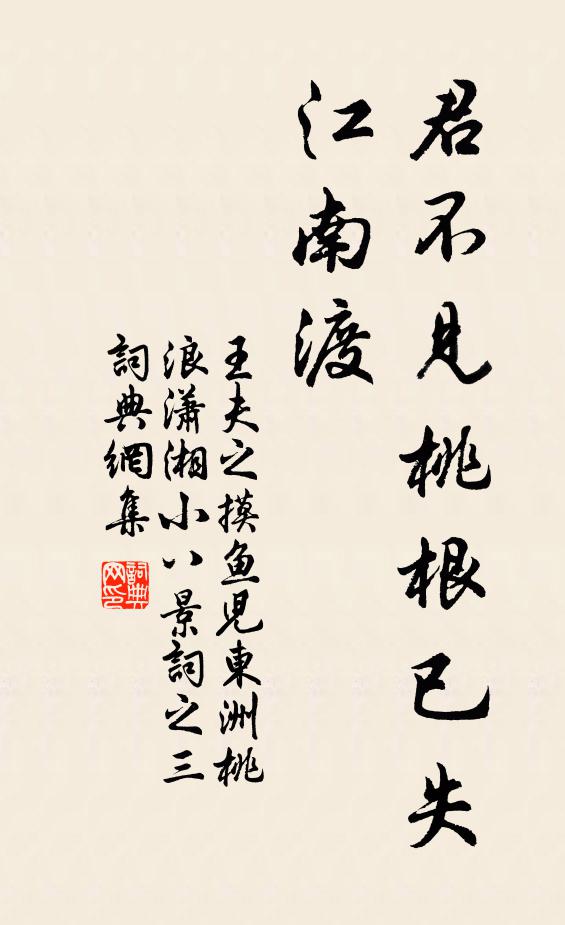 君不見桃根已失
江南渡
王夫之摸魚兒東洲桃
浪瀟湘小八景詞之三
詞典網集
詞典
网印